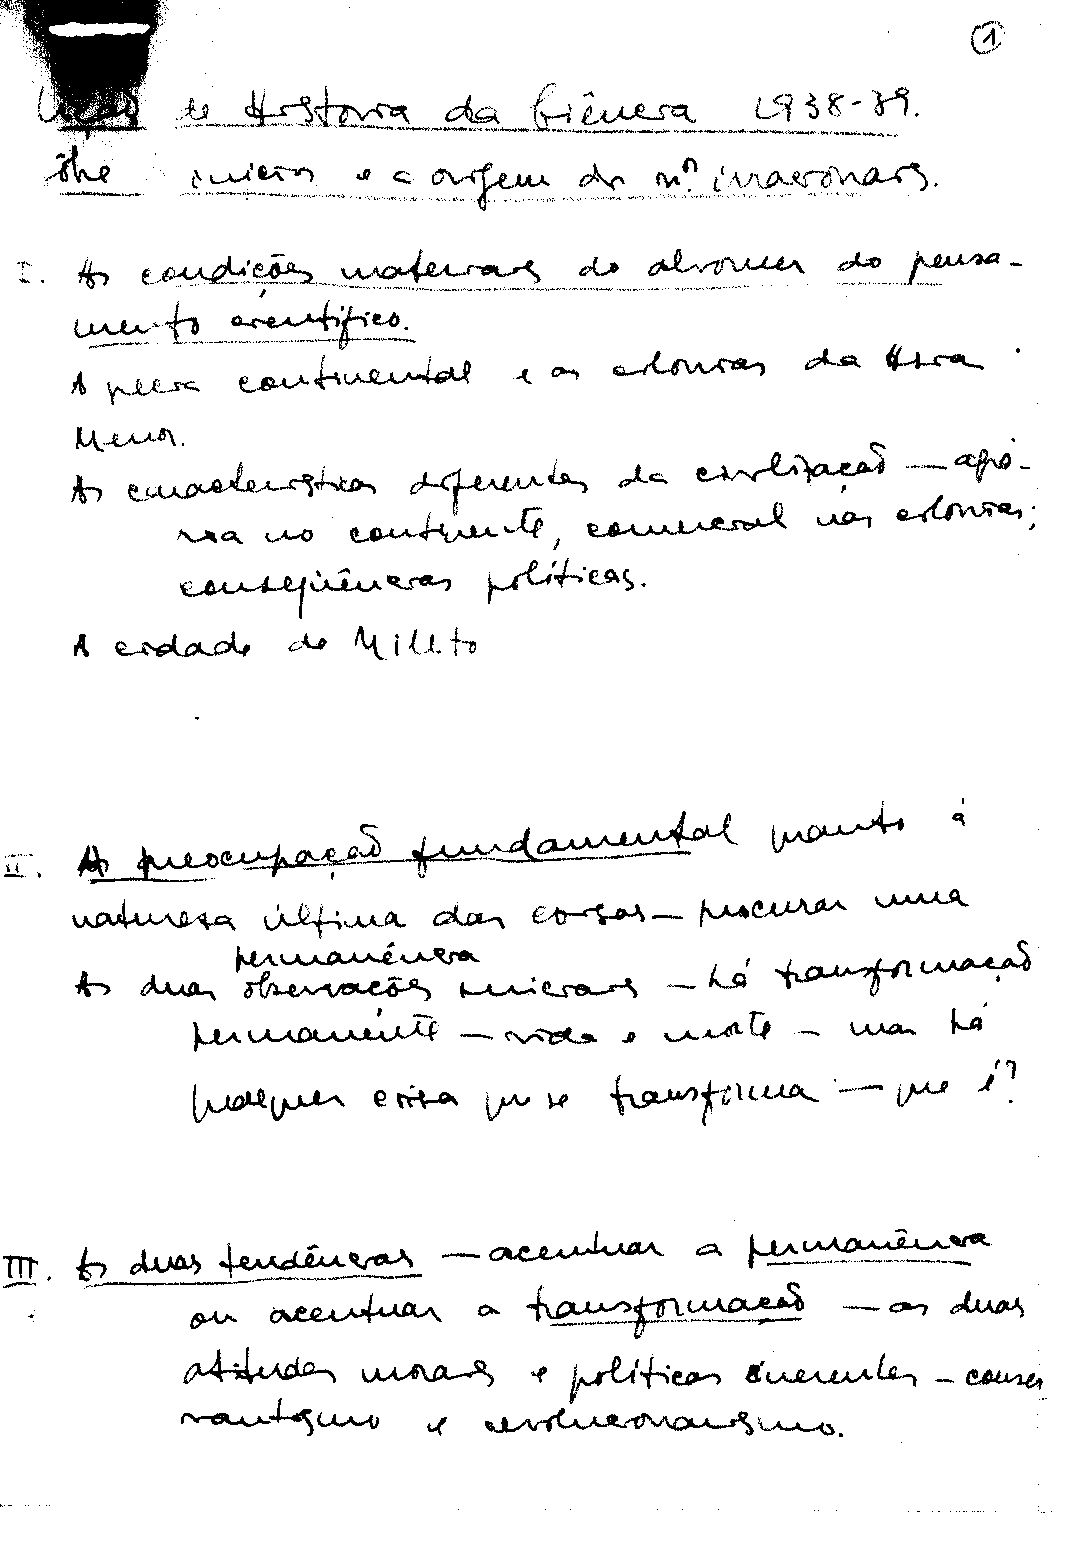 1
Lições de História da Ciência 1938-39.
Sobre início e a origem dos nos. irracionais.
I. As condições materiais do alvorecer do pensa-
mento científico.
A Grécia continental e as colónias da Ásia
Menor.
As características diferentes da civilização — agrá-
ria no continente, comercial nas colónias;
conseqüências políticas.
A cidade de Mileto
II. A preocupação fundamental quanto à
natureza última das coisas — procurar uma
permanência
As duas observações iniciais — há transformação
permanente — vida e morte — mas há
qualquer coisa que se transforma — que é?
III. As duas tendências — acentuar a permanência
ou acentuar a transformação — as duas
atitudes morais e políticas inerentes — conser
vantismo e revolucionarismo.